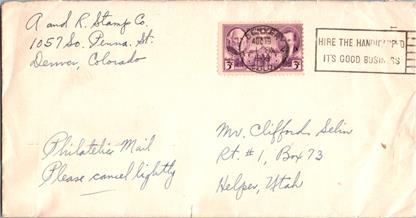 A and R. Stamp Co.
1057 So. Penna. St.
Denver, Colorado
DENVER
COLO.
3¢
3¢
HIRE THE HANDICAPPED
IT'S GOOD BUSINESS
Philatelic Mail
Please cancel lightly
Mr. Clifford Selin
Rt. #1, Box 73
Helper, Utah